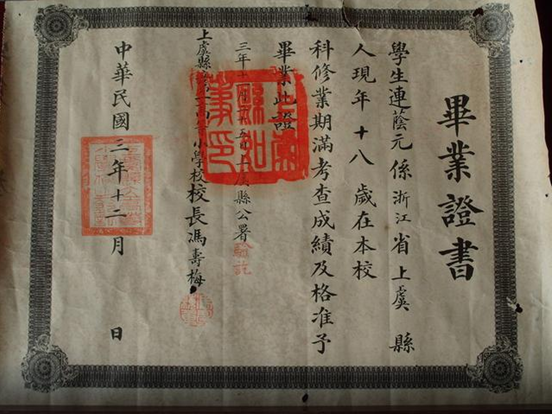 畢業證書
學生連蔭元係浙江省上虞縣
人現年十八歲在本校
科修業期滿考查成績及格准予
畢業此證
三年十
上虞縣公署
驗訖
上虞縣
高等小學校校長馮壽梅
中華民國三年十二月 日